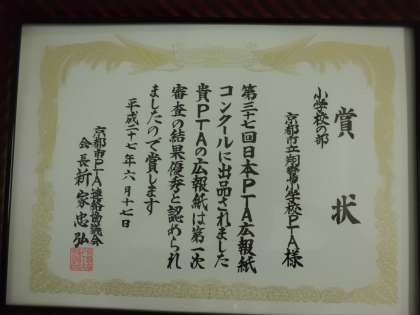 賞状
小学校の部
京都市立朔磐小学校PTA様
第三十七回日本PTA広報紙
コンクールに出品されました
貴PTAの広報紙は第一次
審査の結果優秀と認められ
ましたので賞します
平成二十七年六月十七日
京都市PTA連絡協議会
会長 新家忠弘